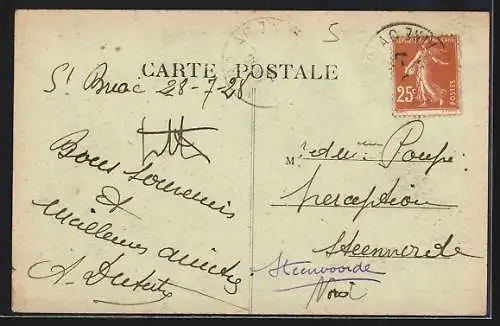 CARTE POSTALE
St Briac 28-7-28
Bons souvenirs
et
meilleures amitiés
A.
25c
POSTES
M
Perception
Steenvorde
Steenvoorde
Nord